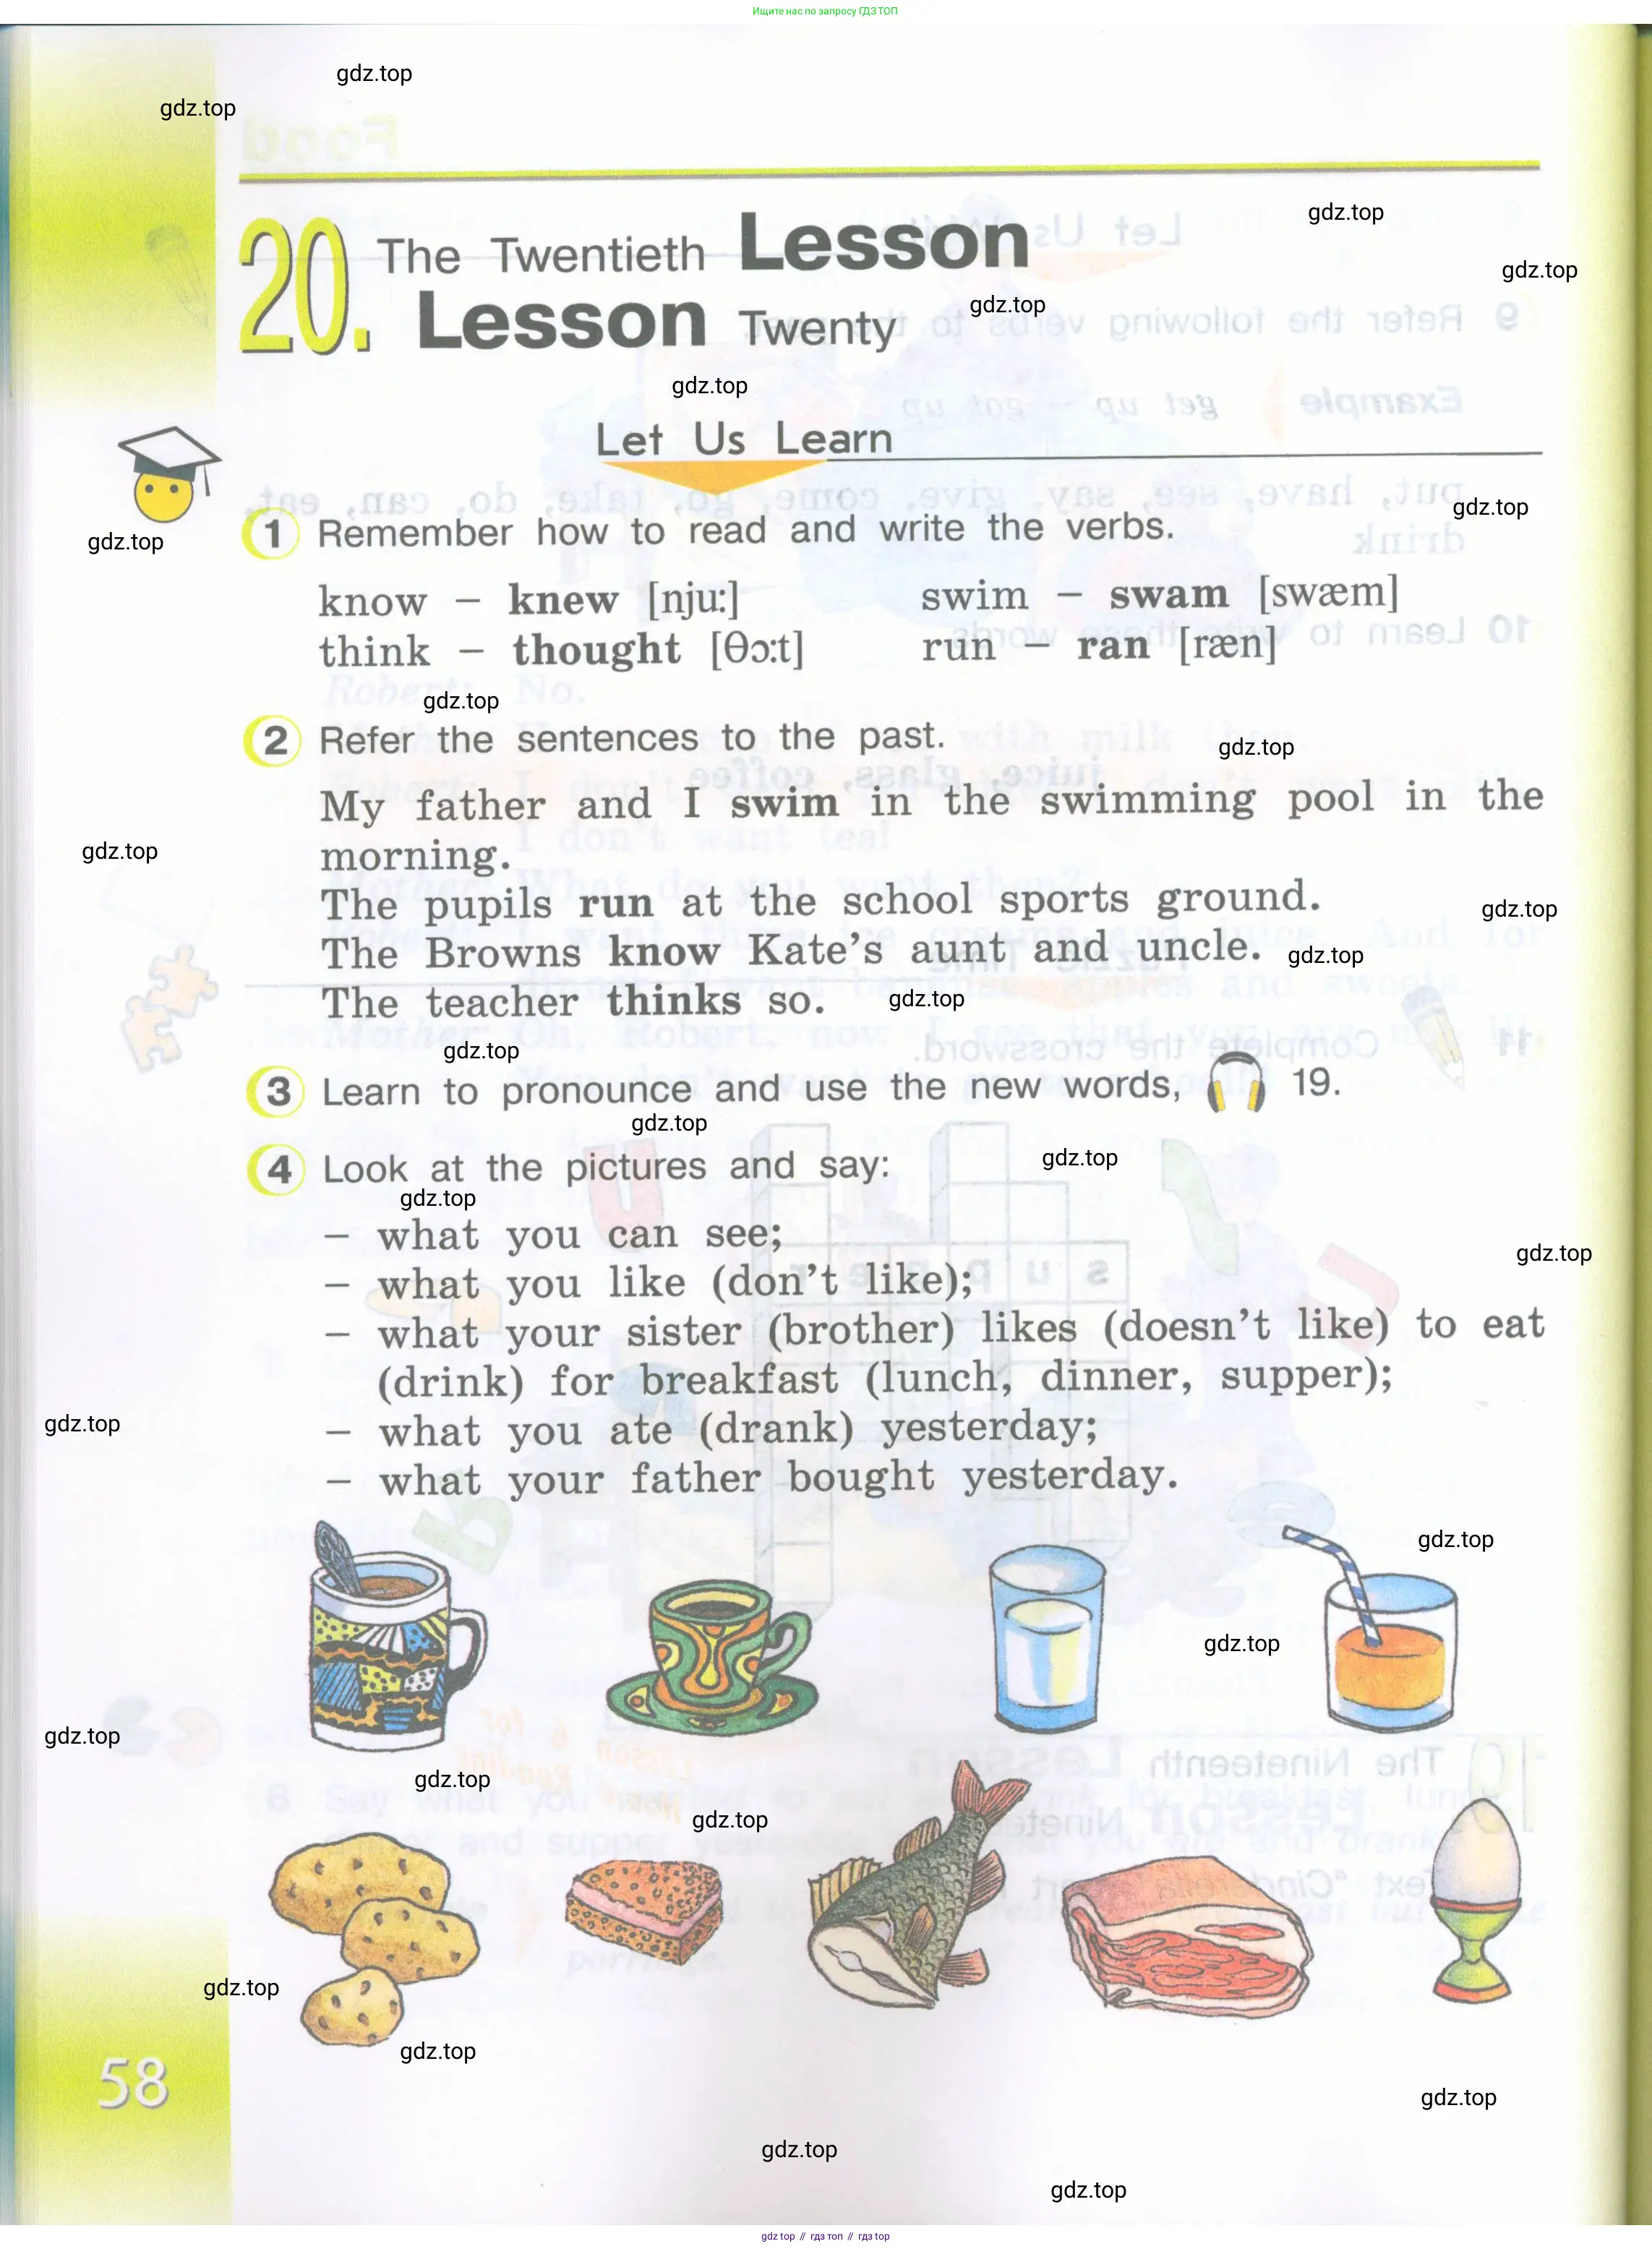 Ищите нас по запросу ГДЗ ТОП
gdz.top
gdz.top
gdz.top
20. The Twentieth Lesson
gdz.top
Lesson Twenty
gdz.top
gdz.top
Let Us Learn
gdz.top
1 Remember how to read and write the verbs.
gdz.top
know – knew [nju:] swim – swam [swæm]
think – thought [θɔ:t] run – ran [ræn]
gdz.top
2 Refer the sentences to the past.
gdz.top
My father and I swim in the swimming pool in the
morning.
gdz.top
The pupils run at the school sports ground.
gdz.top
The Browns know Kate's aunt and uncle.
gdz.top
The teacher thinks so.
gdz.top
gdz.top
3 Learn to pronounce and use the new words, 19.
gdz.top
4 Look at the pictures and say:
gdz.top
gdz.top
– what you can see;
gdz.top
– what you like (don't like);
– what your sister (brother) likes (doesn't like) to eat
(drink) for breakfast (lunch, dinner, supper);
gdz.top
– what you ate (drank) yesterday;
– what your father bought yesterday.
gdz.top
gdz.top
gdz.top
gdz.top
gdz.top
gdz.top
gdz.top
58
gdz.top
gdz.top
gdz.top
gdz top // гдз топ // гдз top